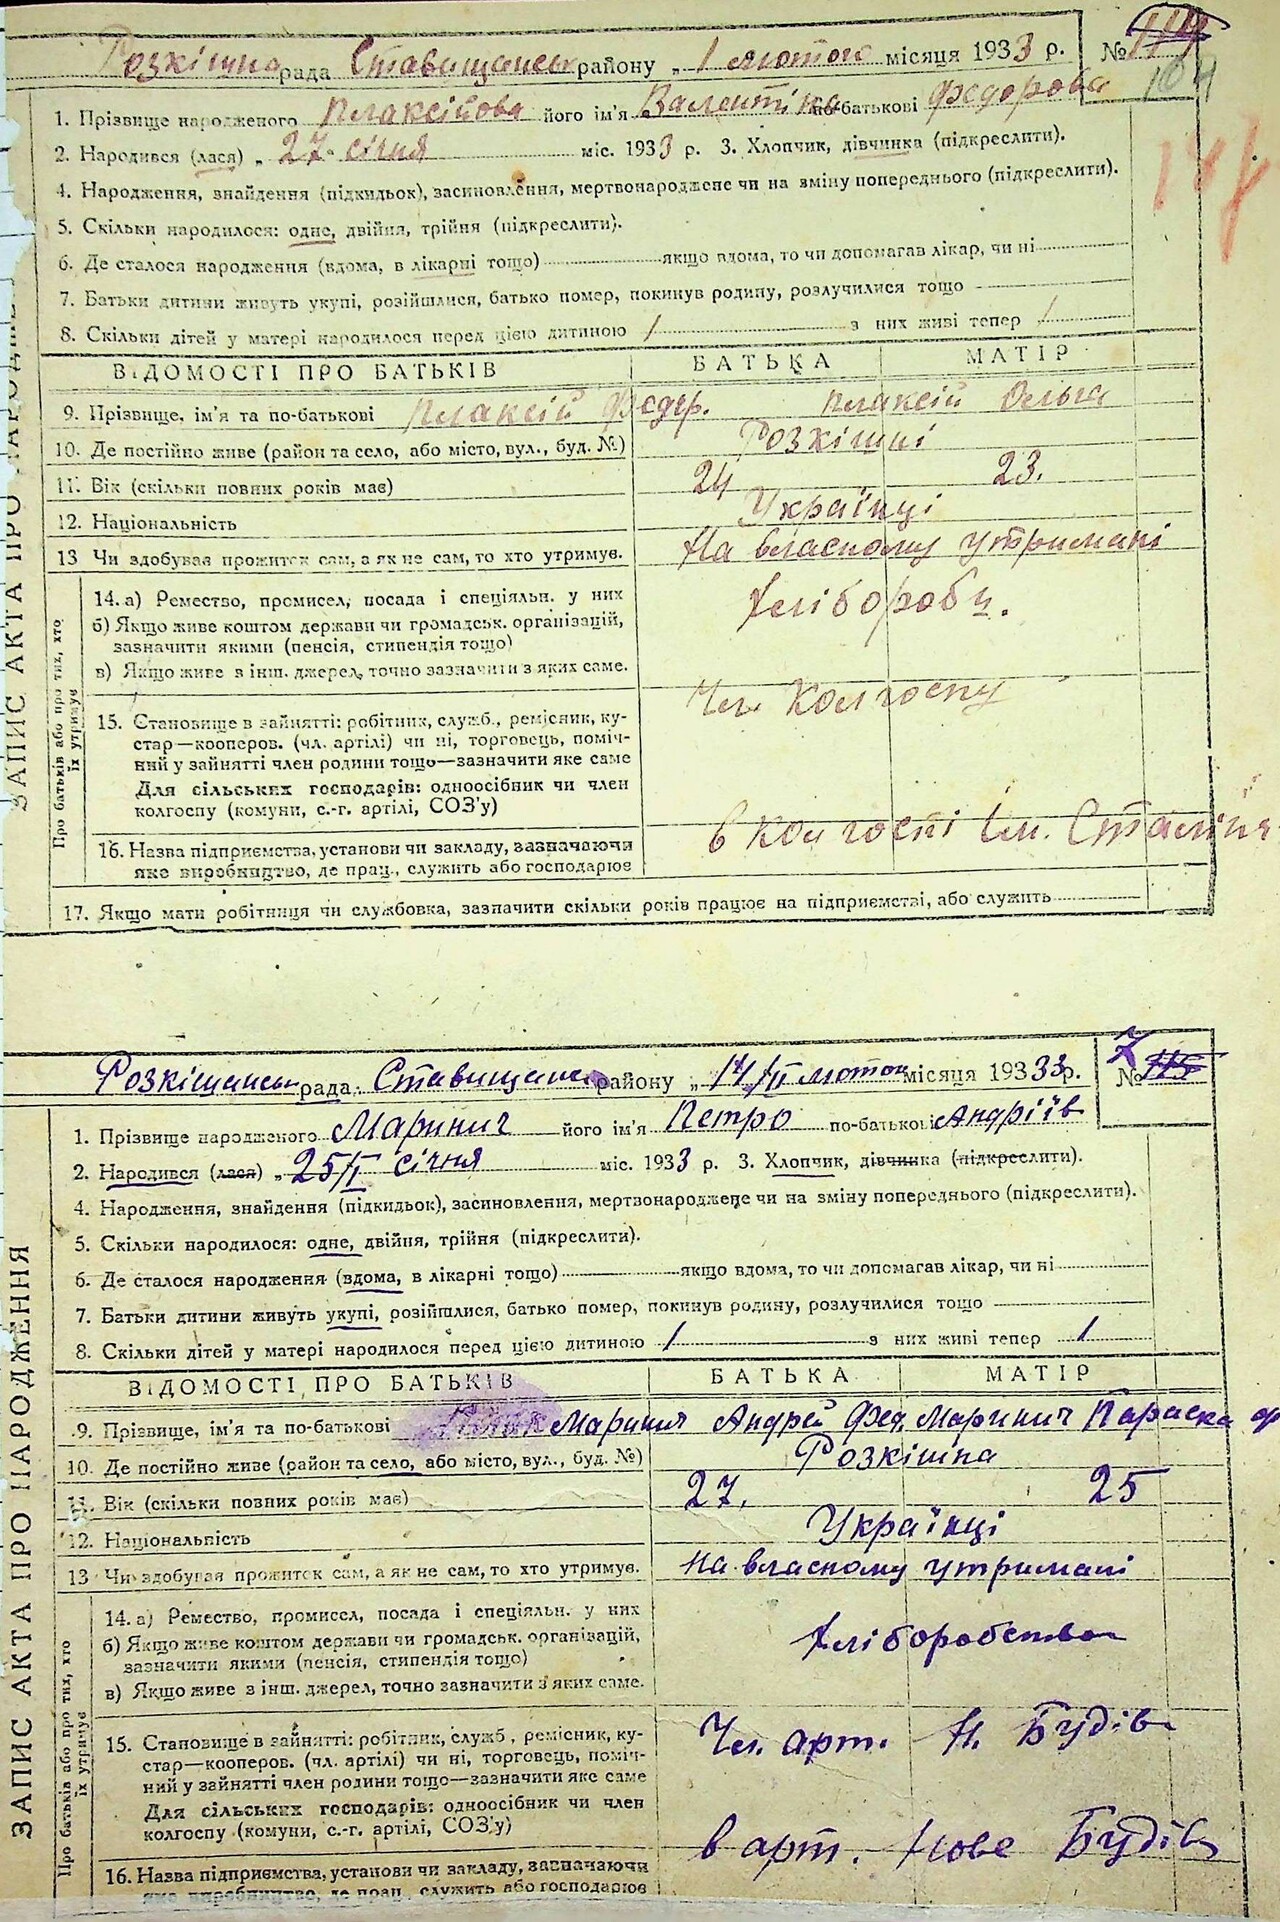 Розкішна рада Ставищансь району „ 1 лютого місяця 1933 р. № 114
104
1. Прізвище народженого Плаксійова його ім'я Валентіна по-батькові Федорова
2. Народився (лася) „ 27 січня міс. 1933 р. 3. Хлопчик, дівчинка (підкреслити).
4. Народження, знайдення (підкидьок), засиновлення, мертвонароджене чи на зміну попереднього (підкреслити).
5. Скільки народилося: одне, двійня, трійня (підкреслити).
6. Де сталося народження (вдома, в лікарні тощо) якщо вдома, то чи допомагав лікар, чи ні
7. Батьки дитини живуть укупі, розійшлися, батько помер, покинув родину, розлучилися тощо
8. Скільки дітей у матері народилося перед цією дитиною 1 з них живі тепер 1
ВІДОМОСТІ ПРО БАТЬКІВ БАТЬКА МАТІР
9. Прізвище, ім'я та по-батькові Плаксій Федер. Плаксій Ольга
10. Де постійно живе (район та село, або місто, вул., буд. №) Розкішні
11. Вік (скільки повних років має) 24 23.
12. Національність Українці
13 Чи здобував прожиток сам, а як не сам, то хто утримує. На власному утримані
14. а) Ремество, промисел, посада і спеціяльн. у них Хлібороби.
б) Якщо живе коштом держави чи громадськ. організацій,
зазначити якими (пенсія, стипендія тощо)
в) Якщо живе з інш. джерел, точно зазначити з яких саме.
15. Становище в зайнятті: робітник, служб., ремісник, ку- Чл. Колгоспу
стар—кооперов. (чл. артілі) чи ні, торговець, поміч-
ний у зайнятті член родини тощо—зазначити яке саме
Для сільських господарів: одноосібник чи член
колгоспу (комуни, с.-г. артілі, СОЗ'у)
16. Назва підприємства, установи чи закладу, зазначаючи в колгоспі Ім. Сталіна
яке виробництво, де прац., служить або господарює
17. Якщо мати робітниця чи службовка, зазначити скільки років працює на підприємстві, або служить
Про батьків або про тих, хто
їх утримує
ЗАПИС АКТА ПРО НАРОДЖЕ
Розкішансь рада Ставищансь району „ 14/II лютого місяця 1933 р. № 115
7
1. Прізвище народженого Маринич його ім'я Петро по-батькові Андріїв
2. Народився (лася) „ 25/I січня міс. 1933 р. 3. Хлопчик, дівчинка (підкреслити).
4. Народження, знайдення (підкидьок), засиновлення, мертвонароджене чи на зміну попереднього (підкреслити).
5. Скільки народилося: одне, двійня, трійня (підкреслити).
6. Де сталося народження (вдома, в лікарні тощо) якщо вдома, то чи допомагав лікар, чи ні
7. Батьки дитини живуть укупі, розійшлися, батько помер, покинув родину, розлучилися тощо
8. Скільки дітей у матері народилося перед цією дитиною 1 з них живі тепер 1
ВІДОМОСТІ ПРО БАТЬКІВ БАТЬКА МАТІР
9. Прізвище, ім'я та по-батькові Маринич Андрей Фед. Маринич Параска
10. Де постійно живе (район та село, або місто, вул., буд. №) Розкішна
11. Вік (скільки повних років має) 27. 25
12. Національність Українці
13 Чи здобував прожиток сам, а як не сам, то хто утримує. На власному утримані
14. а) Ремество, промисел, посада і спеціяльн. у них Хліборобство
б) Якщо живе коштом держави чи громадськ. організацій,
зазначити якими (пенсія, стипендія тощо)
в) Якщо живе з інш. джерел, точно зазначити з яких саме.
15. Становище в зайнятті: робітник, служб., ремісник, ку- Чл. арт. Н. Будів
стар—кооперов. (чл. артілі) чи ні, торговець, поміч-
ний у зайнятті член родини тощо—зазначити яке саме
Для сільських господарів: одноосібник чи член
колгоспу (комуни, с.-г. артілі, СОЗ'у)
16. Назва підприємства, установи чи закладу, зазначаючи в арт. Нове Будів
яке виробництво, де прац., служить або господарює
Про батьків або про тих, хто
їх утримує
ЗАПИС АКТА ПРО НАРОДЖЕННЯ